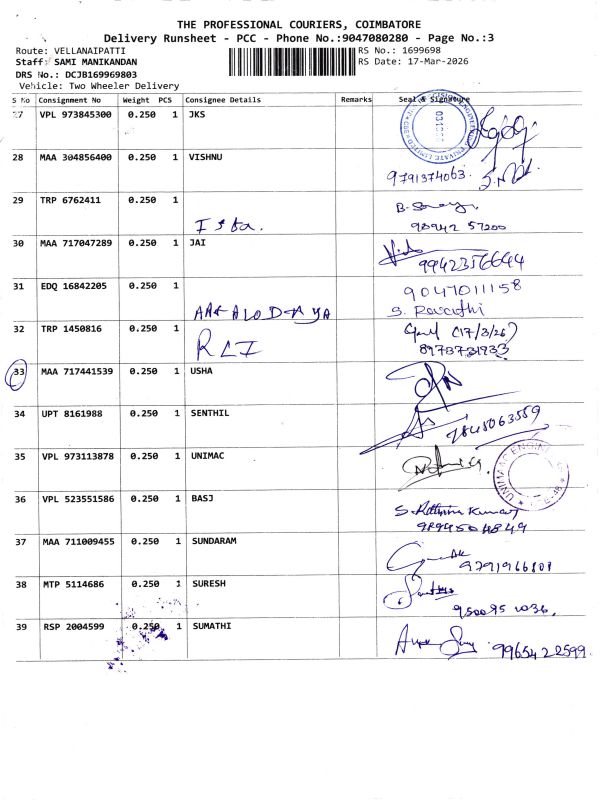 THE PROFESSIONAL COURIERS, COIMBATORE
Delivery Runsheet - PCC - Phone No.:9047080280 - Page No.:3
Route: VELLANAIPATTI
RS No.: 1699698
Staff: SAMI MANIKANDAN
RS Date: 17-Mar-2026
DRS No.: DCJB169969803
Vehicle: Two Wheeler Delivery
S No Consignment No Weight PCS Consignee Details Remarks Seal & Signature
27 VPL 973845300 0.250 1 JKS
28 MAA 304856400 0.250 1 VISHNU
9791374063
29 TRP 6762411 0.250 1
98942 57200
30 MAA 717047289 0.250 1 JAI
9942356644
31 EDQ 16842205 0.250 1
9047011158
S. Revathi
32 TRP 1450816 0.250 1
(17/3/26)
8973731933
33 MAA 717441539 0.250 1 USHA
34 UPT 8161988 0.250 1 SENTHIL
7845063559
35 VPL 973113878 0.250 1 UNIMAC
36 VPL 523551586 0.250 1 BASJ
9894504849
37 MAA 711009455 0.250 1 SUNDARAM
9791966801
38 MTP 5114686 0.250 1 SURESH
39 RSP 2004599 0.250 1 SUMATHI
9965422599